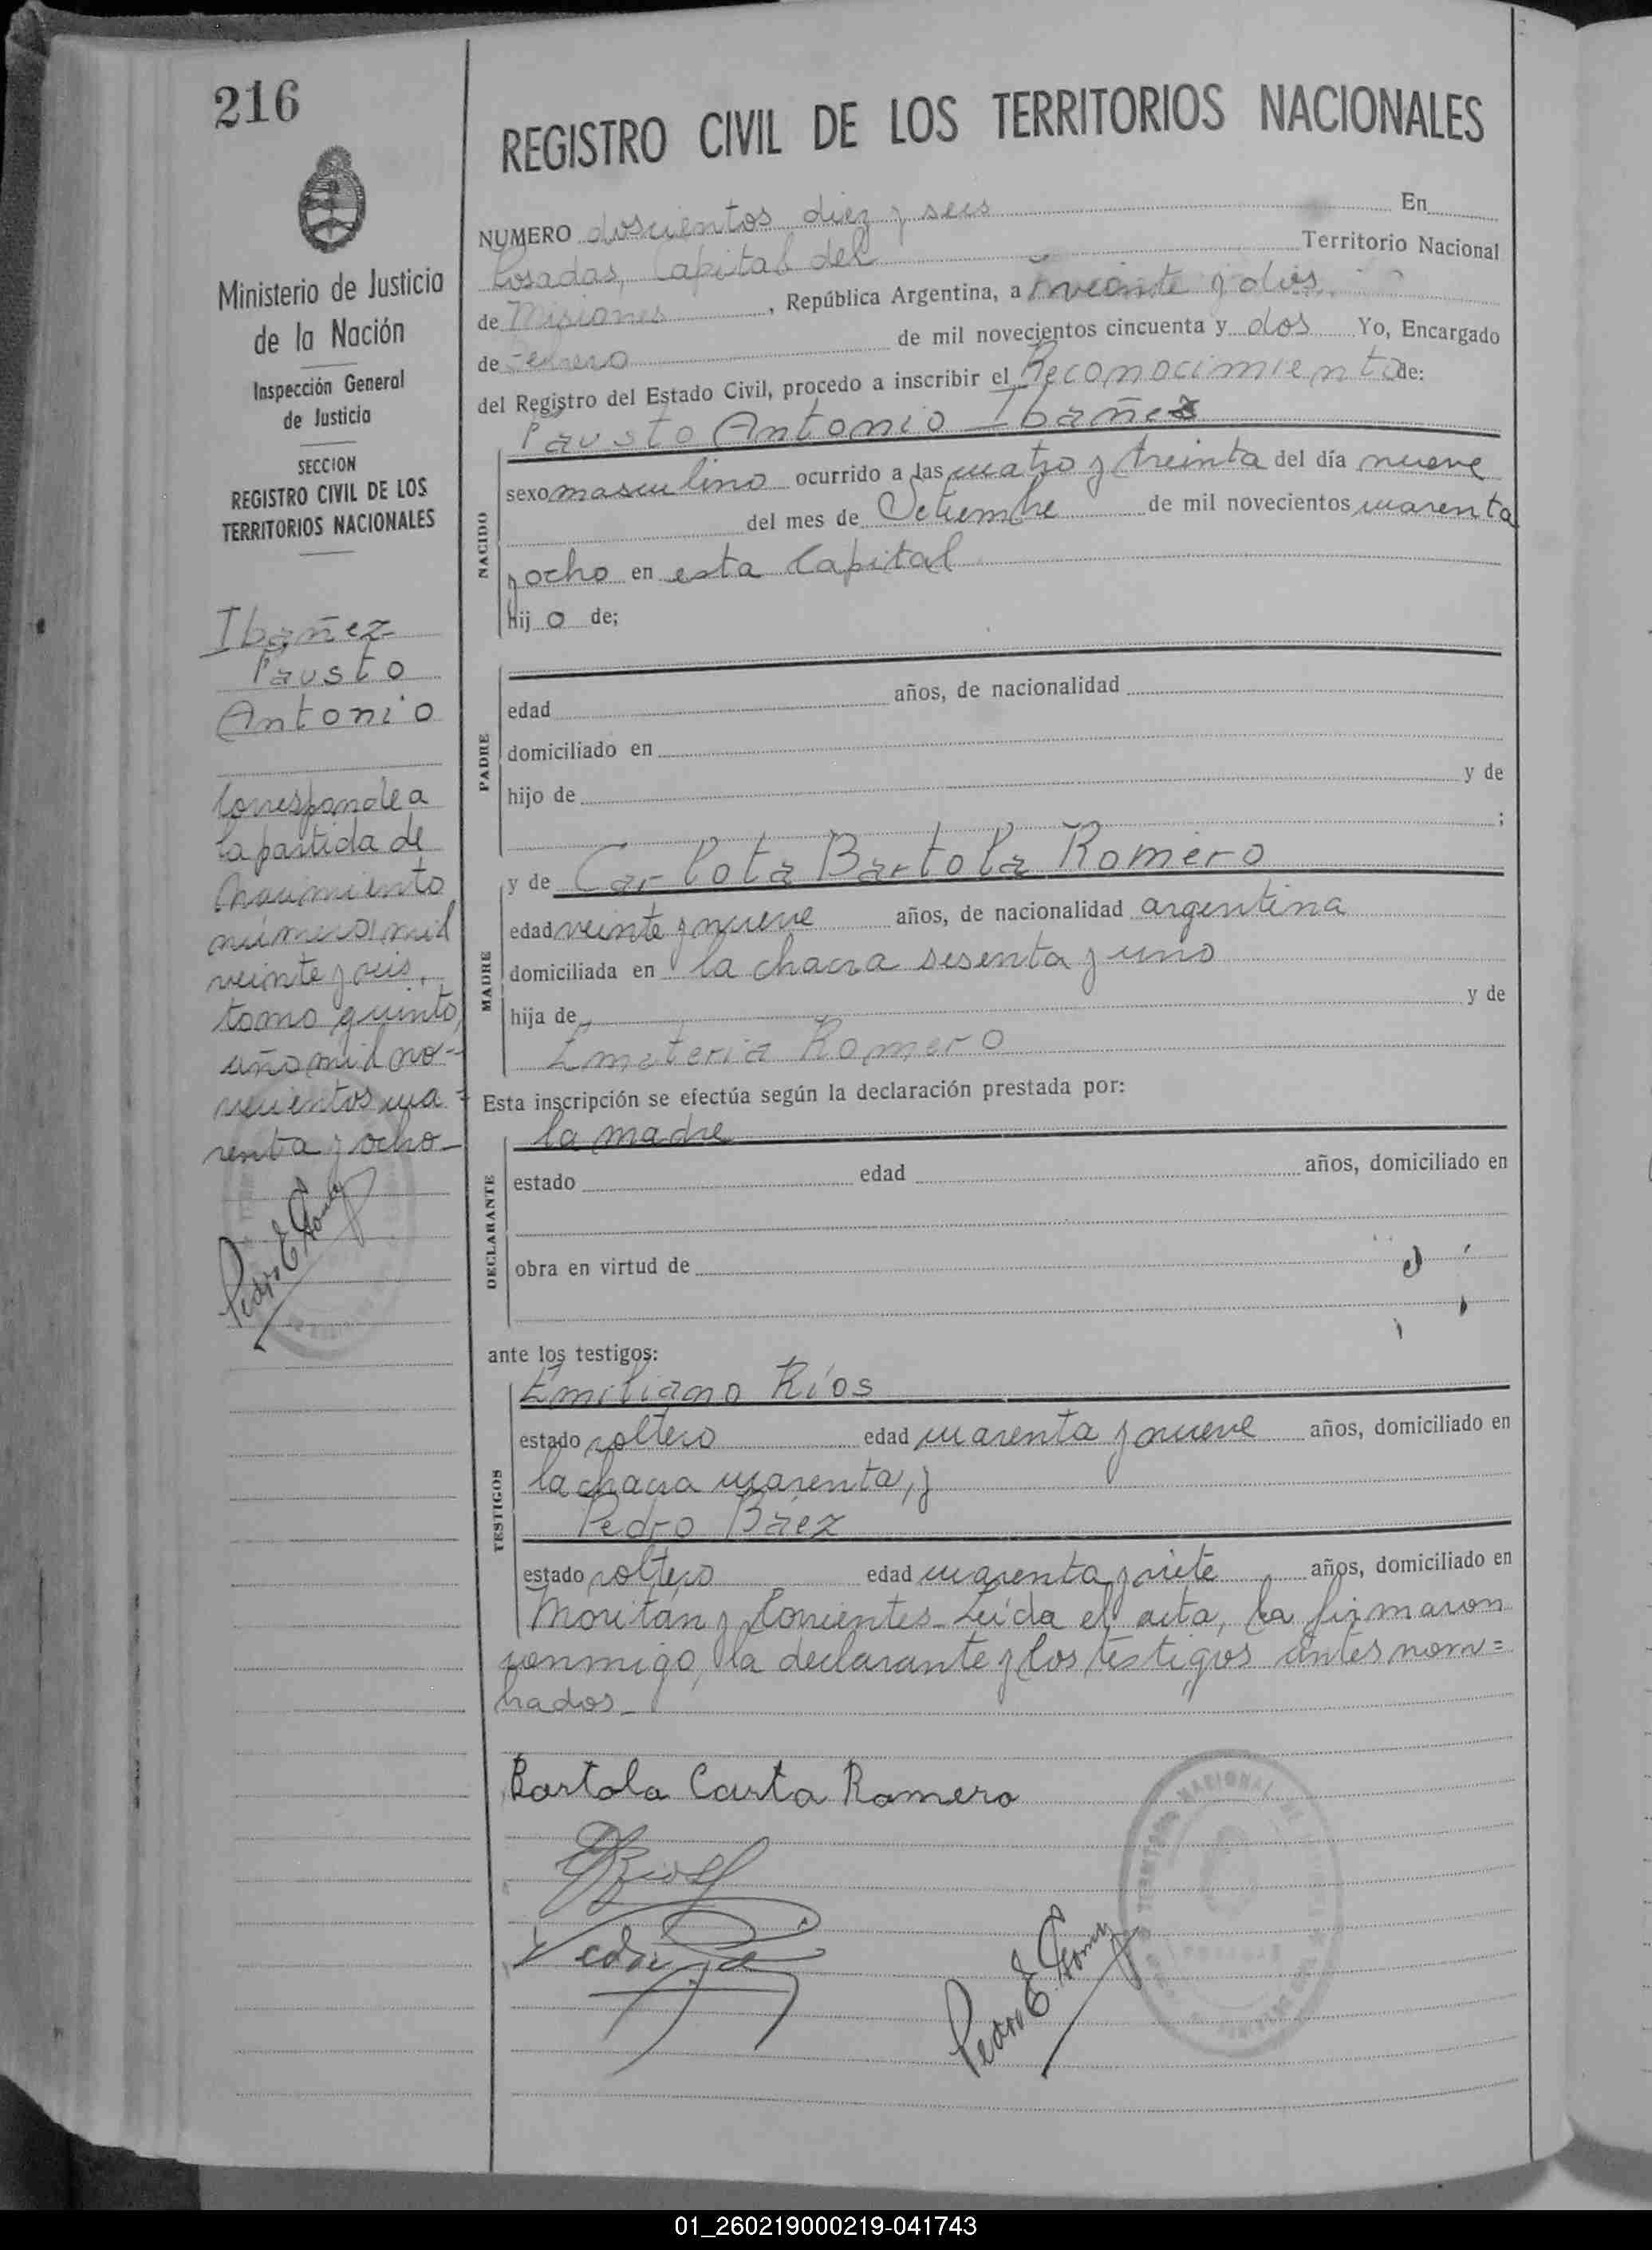 216
REGISTRO CIVIL DE LOS TERRITORIOS NACIONALES
Ministerio de Justicia
de la Nación
Inspección General
de Justicia
SECCION
REGISTRO CIVIL DE LOS
TERRITORIOS NACIONALES
Ibañez
Fausto
Antonio
Corresponde a
la partida de
Nacimiento
número mil
veinte y seis,
tomo quinto,
año mil no-
vecientos cua-
renta y ocho-
Pedro E
NUMERO doscientos diez y seis En
Posadas, Capital del Territorio Nacional
de Misiones, República Argentina, a veinte y dos
de Febrero de mil novecientos cincuenta y dos Yo, Encargado
del Registro del Estado Civil, procedo a inscribir el Reconocimiento de:
Fausto Antonio Ibañez
NACIDO
sexo masculino ocurrido a las cuatro y treinta del día nueve
del mes de Setiembre de mil novecientos cuarenta
y ocho en esta Capital
hijo de;
PADRE
edad años, de nacionalidad
domiciliado en
hijo de y de
;
y de Carlota Bartola Romero
MADRE
edad veinte y nueve años, de nacionalidad argentina
domiciliada en la chacra sesenta y uno
hija de y de
Emeteria Romero
Esta inscripción se efectúa según la declaración prestada por:
la madre
DECLARANTE
estado edad años, domiciliado en
obra en virtud de
ante los testigos:
TESTIGOS
Emiliano Ríos
estado soltero edad cuarenta y nueve años, domiciliado en
la chacra cuarenta, y
Pedro Báez
estado soltero edad cuarenta y siete años, domiciliado en
Moritán y Corrientes. Leída el acta, la firmaron
conmigo, la declarante y los testigos antes nom=
brados_
Bartola Carta Romero
Pedro E. Gomez
01_260219000219-041743